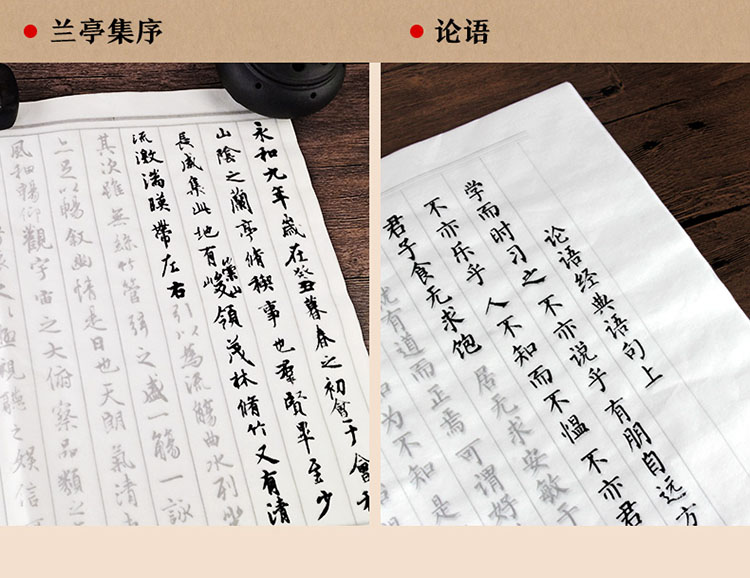 兰亭集序
永和九年歲在癸丑暮春之初會于會
山陰之蘭亭脩稧事也羣賢畢至少
長咸集此地有崇山峻領茂林脩竹又有清
流激湍暎帶左右引以為流觴曲水列坐
其次雖無絲竹管弦之盛一觴一詠
上足以暢叙幽情是日也天朗氣清
風和暢仰觀宇宙之大俯察品類之
視聽之娛信
论语
论语经典语句上
学而时习之不亦说乎有朋自远方
不亦乐乎人不知而不愠不亦君
君子食无求饱居无求安敏于
就有道而正焉可谓好
为不知是